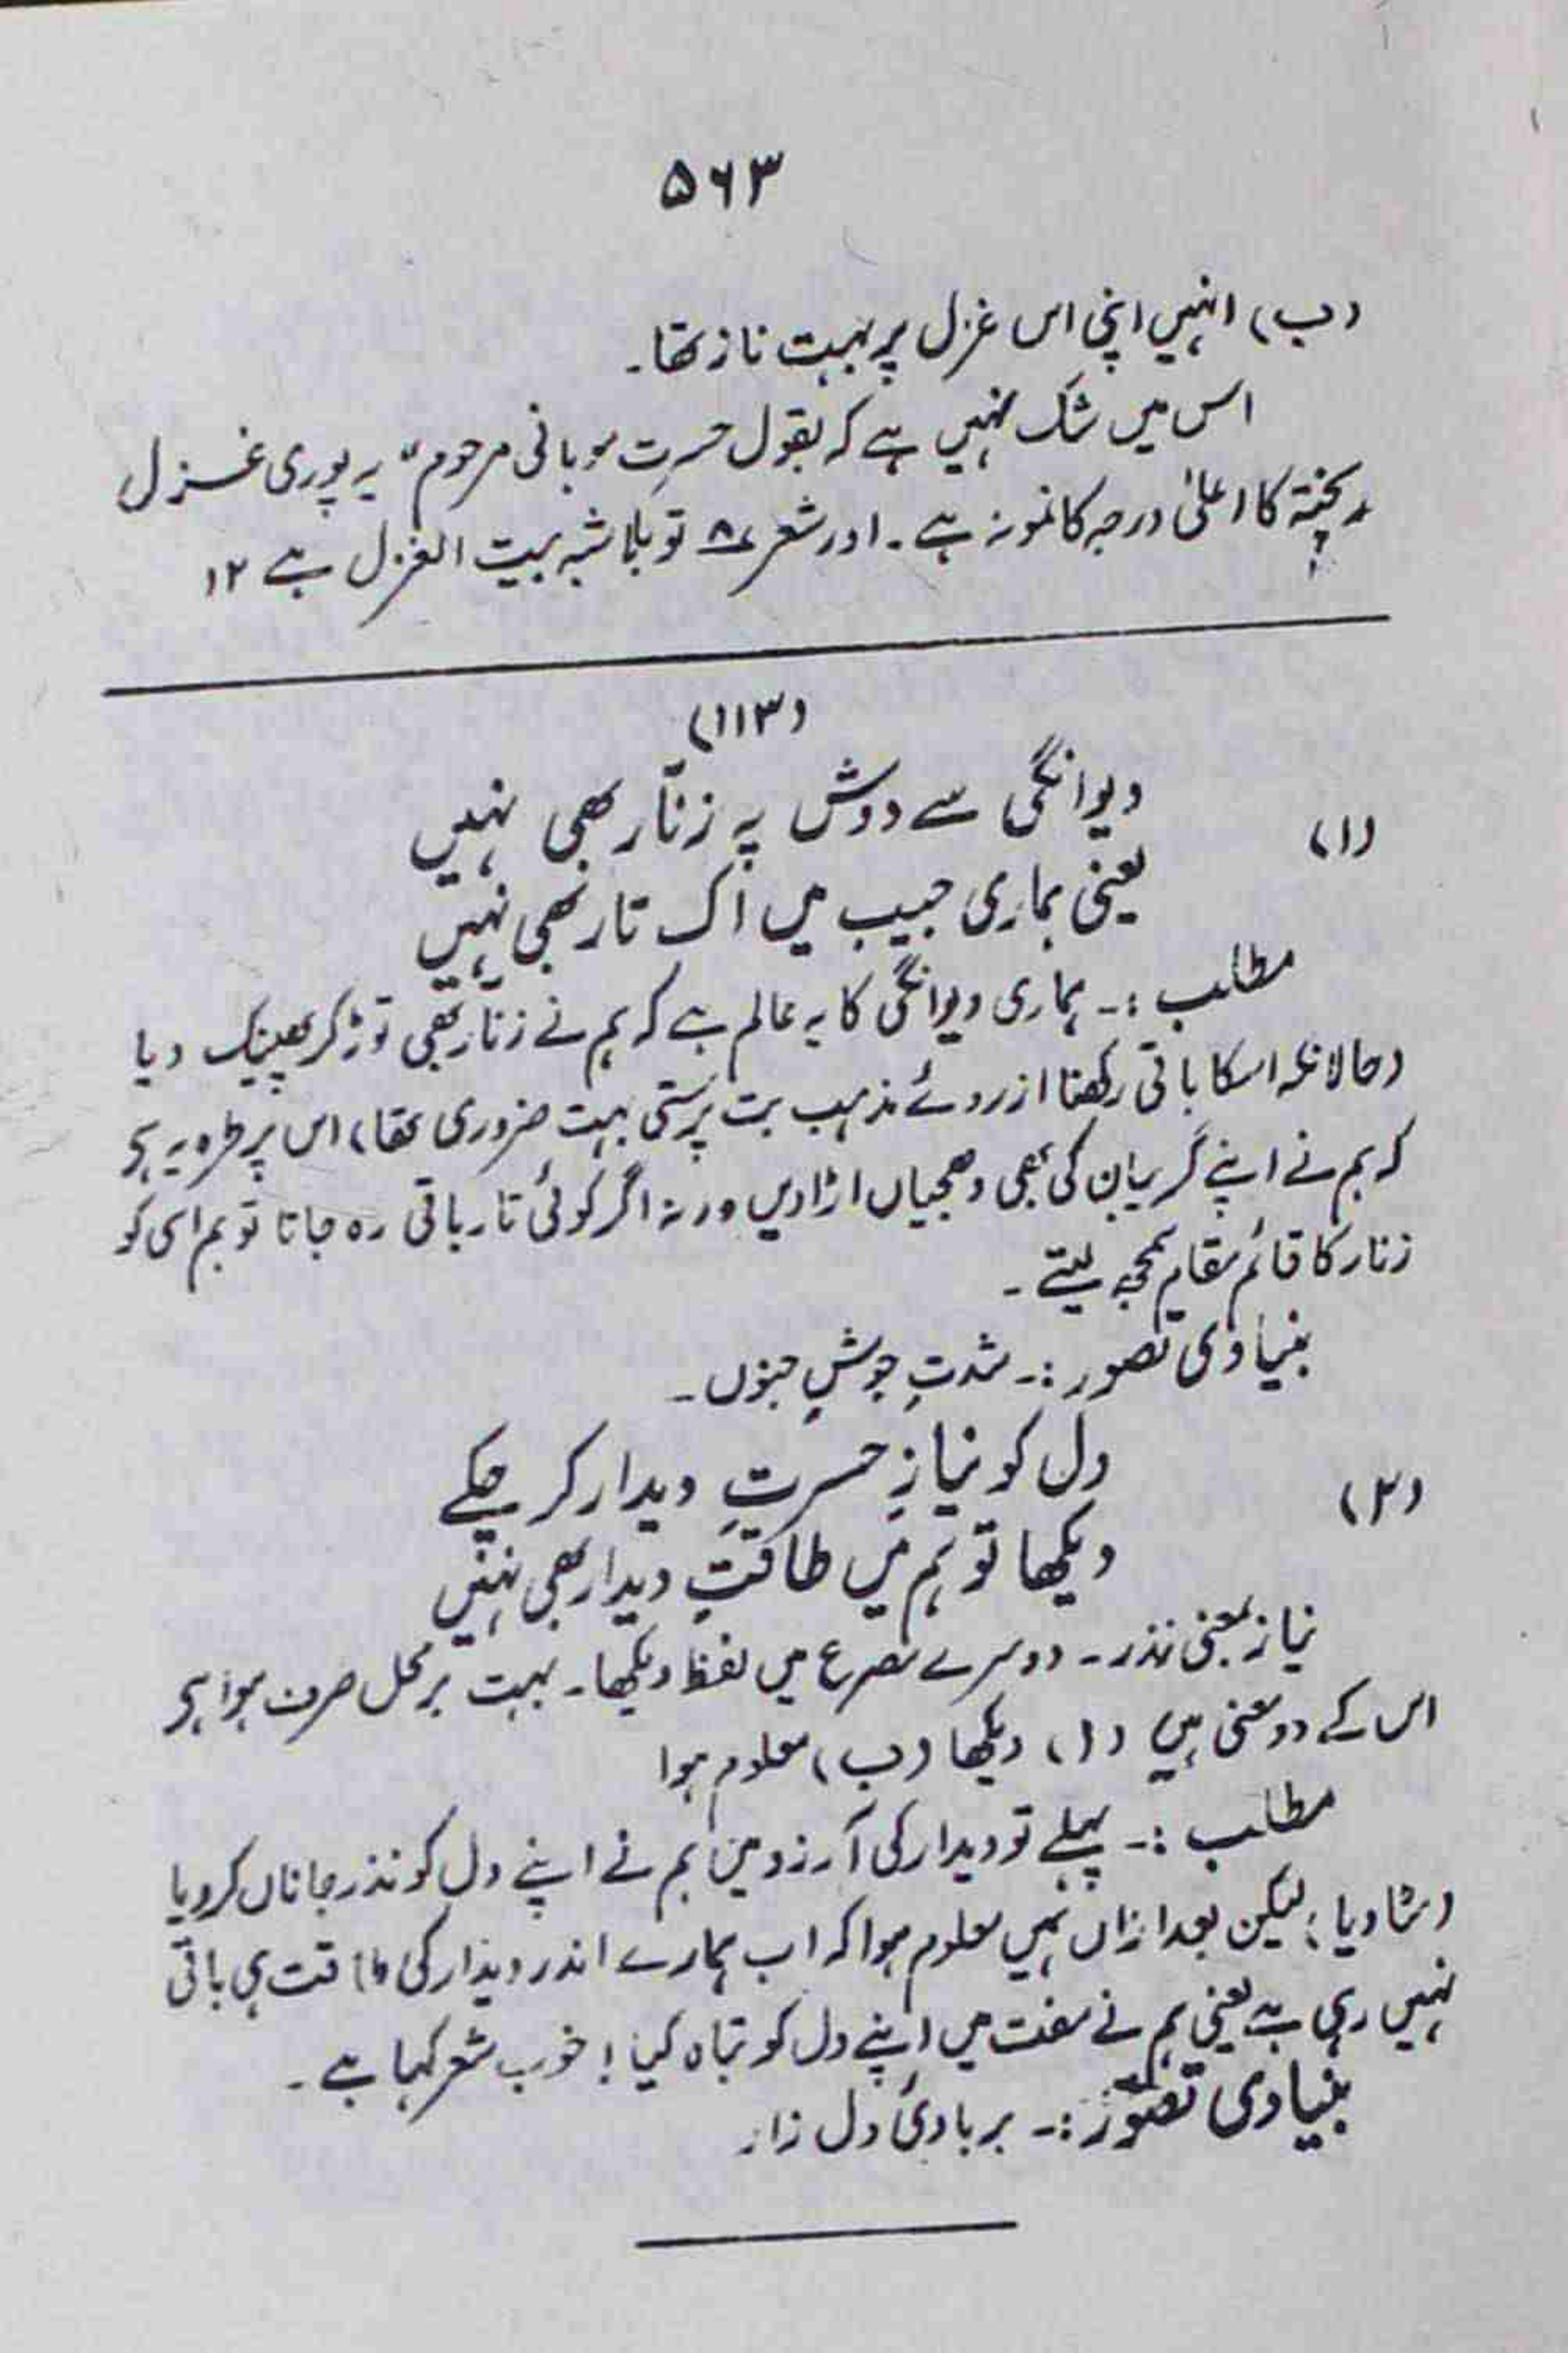 ۵۶۳
(ب) انہیں اپنی اس غزل پر بہت ناز تھا۔
اس میں شک نہیں ہے کہ بقول حسرتِ موہانی مرحوم "یہ پوری غزل
ریختہ کا اعلیٰ درجہ کا نمونہ ہے۔ اور شعر ۸ تو بلا شبہ بیت الغزل ہے ۱۲
(۱۱۳)
(۱) دیوانگی سے دوش پہ زنّار بھی نہیں
یعنی ہماری جیب میں اک تار بھی نہیں
مطلب :۔ ہماری دیوانگی کا یہ عالم ہے کہ ہم نے زنّار بھی توڑ کر پھینک دیا
(حالانکہ اسکا باقی رکھنا از روئے مذہب بت پرستی بہت ضروری تھا) اس پر طرہ یہ ہی
کہ ہم نے اپنے گریبان کی بھی دھجیاں اڑا دیں ورنہ اگر کوئی تار باقی رہ جاتا تو ہم اسی کو
زنار کا قائم مقام سمجھ لیتے۔
بنیادی تصور :۔ شدتِ جوشِ جنوں۔
(۲) دل کو نیازِ حسرتِ دیدار کر چکے
دیکھا تو ہم میں طاقتِ دیدار بھی نہیں
نیاز بمعنی نذر۔ دوسرے مصرع میں لفظ دیکھا۔ بہت برمحل صرف ہوا ہی
اس کے دو معنی ہیں (ا) دیکھا (ب) معلوم ہوا
مطلب :۔ پہلے تو دیدار کی آرزو میں ہم نے اپنے دل کو نذر جاناں کر دیا
(مٹا دیا) لیکن بعد ازاں ہمیں معلوم ہوا کہ اب ہمارے اندر دیدار کی طاقت ہی باقی
نہیں رہی ہے یعنی ہم نے مفت میں اپنے دل کو تباہ کیا! خوب شعر کہا ہے۔
بنیادی تصوّر :۔ بربادئ دل زار